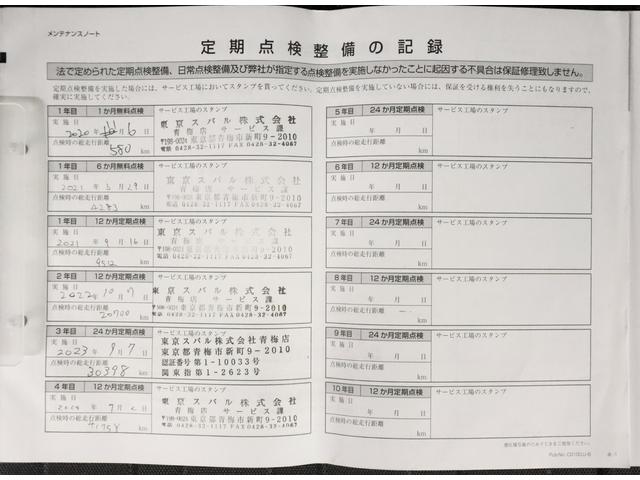 メンテナンスノート
定期点検整備の記録
法で定められた定期点検整備、日常点検整備及び弊社が指定する点検整備を実施しなかったことに起因する不具合は保証修理致しません。
定期点検整備を実施した場合には、サービス工場においてスタンプを貰ってください。定期点検整備を実施していない場合には、保証を受ける権利を失うことにもなりますので、
確実に実施してください。
1年目 1か月無料点検 サービス工場のスタンプ
実施日
2020年 月 6日
点検時の総走行距離
580 km
東京スバル株式会社
青梅店 サービス課
〒198-0024 東京都青梅市新町9-2010
電話 0428-32-1117 FAX 0428-32-4067
1年目 6か月無料点検 サービス工場のスタンプ
実施日
2021年 3月29日
点検時の総走行距離
4283 km
東京スバル株式会社
青梅店 サービス課
〒198-0024 東京都青梅市新町9-2010
電話 0428-32-1117 FAX 0428-32-4067
1年目 12か月定期点検 サービス工場のスタンプ
実施日
2021年 9月16日
点検時の総走行距離
9512 km
東京スバル株式会社
青梅店 サービス課
〒198-0024 東京都青梅市新町9-2010
電話 0428-32-1117 FAX 0428-32-4067
2年目 12か月定期点検 サービス工場のスタンプ
実施日
2022年 10月 7日
点検時の総走行距離
20700 km
東京スバル株式会社
青梅店 サービス課
〒198-0024 東京都青梅市新町9-2010
電話 0428-32-1117 FAX 0428-32-4067
3年目 24か月定期点検 サービス工場のスタンプ
実施日
2023年 9月 7日
点検時の総走行距離
30398 km
東京スバル株式会社青梅店
東京都青梅市新町9-2010
認証番号第1-10033号
関東指第1-2623号
4年目 12か月定期点検 サービス工場のスタンプ
実施日
年 9月 日
点検時の総走行距離
km
東京スバル株式会社
青梅店 サービス課
〒198-0024 東京都青梅市新町9-2010
電話 0428-32-1117 FAX 0428-32-4067
5年目 24か月定期点検 サービス工場のスタンプ
実施日
年 月 日
点検時の総走行距離
km
6年目 12か月定期点検 サービス工場のスタンプ
実施日
年 月 日
点検時の総走行距離
km
7年目 24か月定期点検 サービス工場のスタンプ
実施日
年 月 日
点検時の総走行距離
km
8年目 12か月定期点検 サービス工場のスタンプ
実施日
年 月 日
点検時の総走行距離
km
9年目 24か月定期点検 サービス工場のスタンプ
実施日
年 月 日
点検時の総走行距離
km
10年目 12か月定期点検 サービス工場のスタンプ
実施日
年 月 日
点検時の総走行距離
km